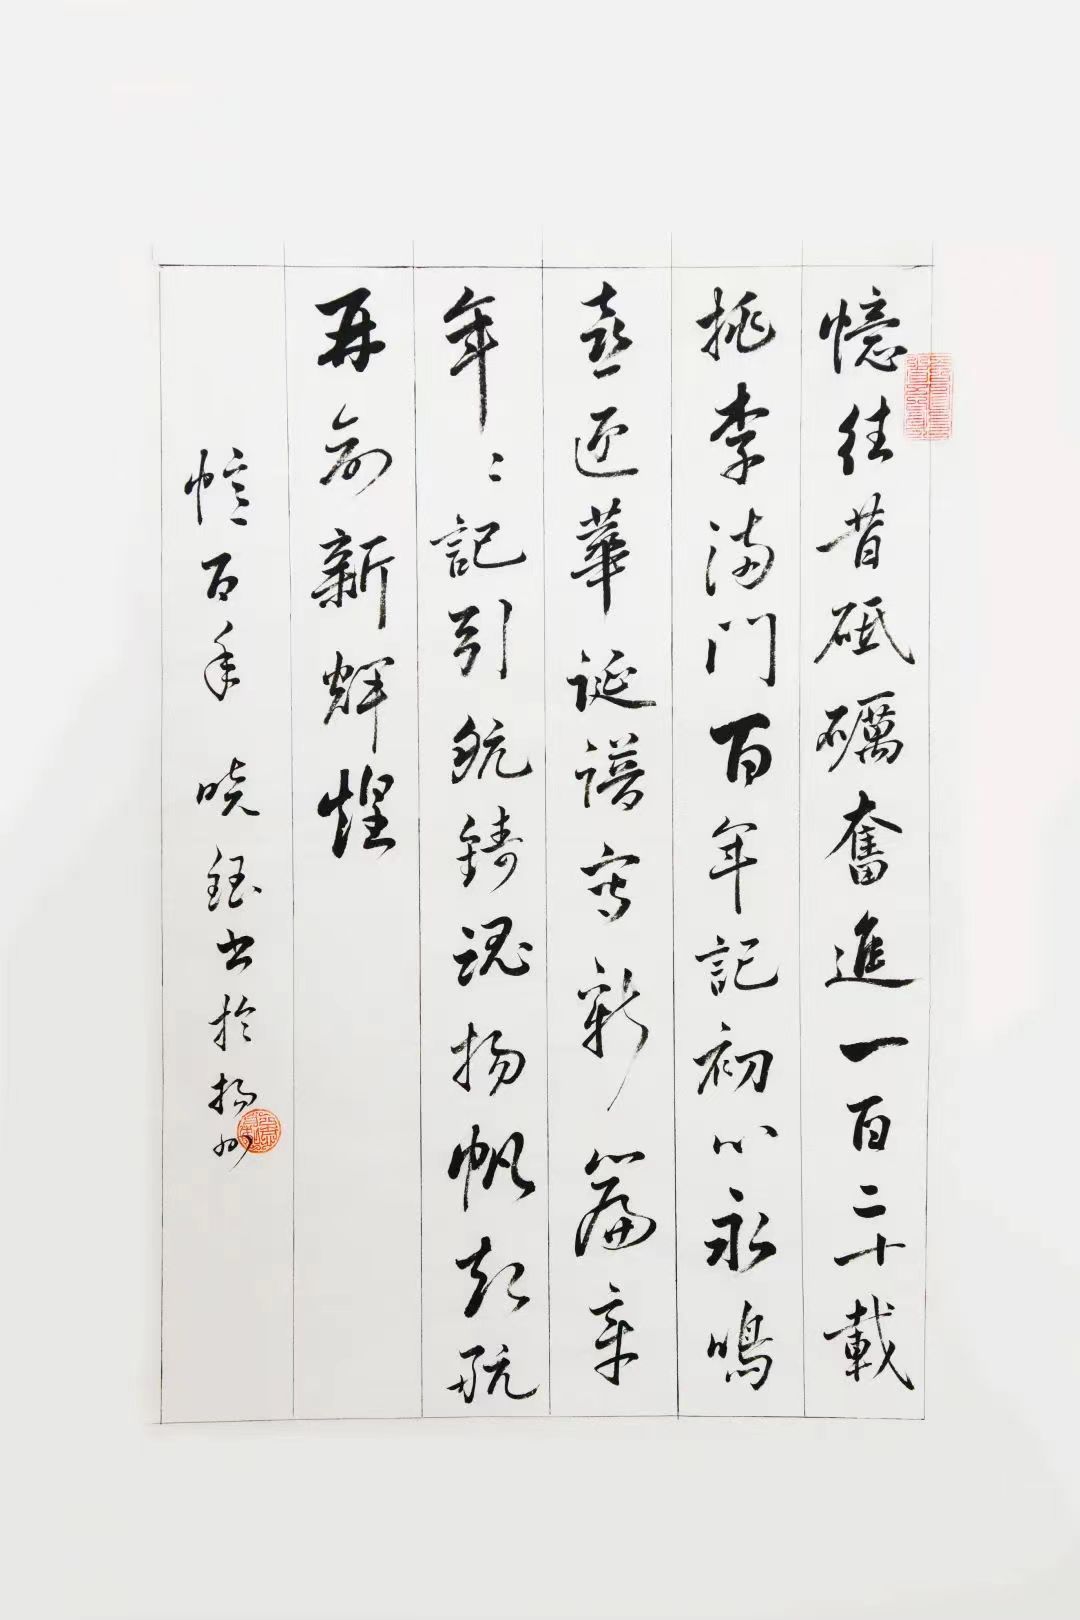 憶往昔砥礪奮進一百二十載
桃李滿门百年記初心永鳴
喜迎華誕譜寫新篇章
年〻記引航鑄魂扬帆起航
再創新輝煌
憶百年 晓鈺书於扬州